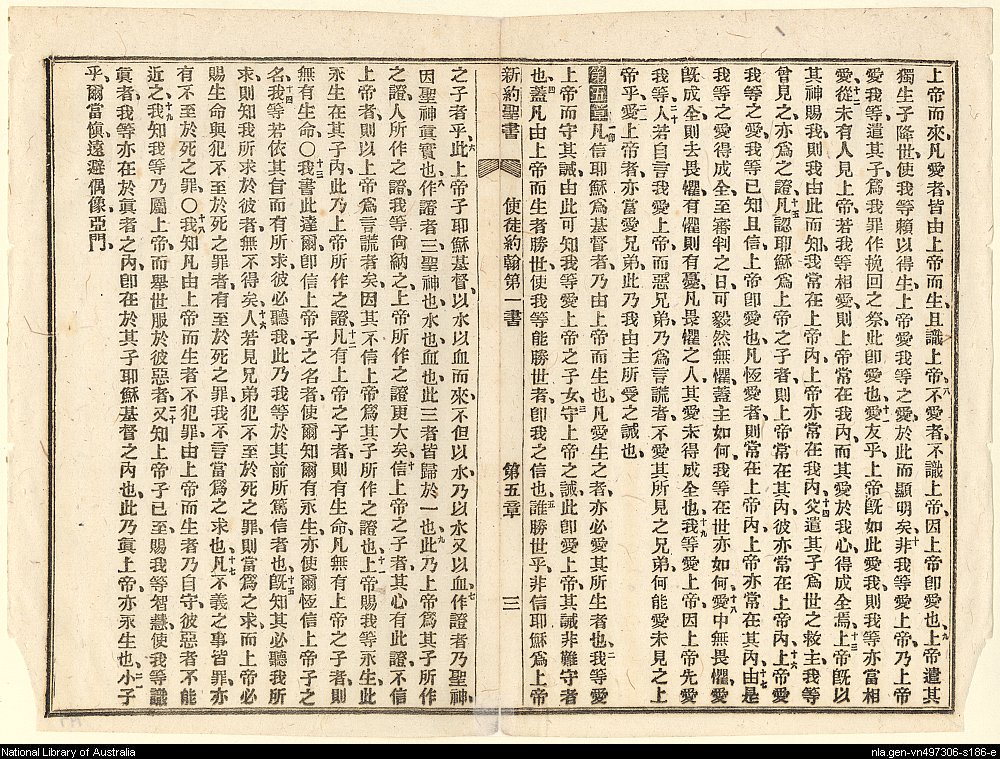 上帝而來、凡愛者皆由上帝而生、且識上帝、八不愛者、不識上帝、因上帝卽愛也、九上帝遣其
獨生子降世、使我等賴以得生、上帝愛我等之愛、於此而顯明矣、十非我等愛上帝、乃上帝
愛我等、遣其子爲我罪作挽回之祭、此卽愛也、十一愛友乎、上帝旣如此愛我、則我等亦當相
愛、十二從未有人見上帝、若我等相愛、則上帝常在我內、而其愛於我心得成全焉、十三上帝旣以
其神賜我、則我由此而知我常在上帝內、上帝亦常在我內、十四父遣其子爲世之救主、我等
曾見之、亦爲之證、十五凡認耶穌爲上帝之子者、則上帝常在其內、彼亦常在上帝內、十六上帝愛
我等之愛、我等已知且信、上帝卽愛也、凡恆愛者、則常在上帝內、上帝亦常在其內、十七由是
我等之愛得成全、至審判之日、可毅然無懼、蓋主如何、我等在世亦如何、十八愛中無畏懼、愛
旣成全、則去畏懼、有懼則有憂、凡畏懼之人、其愛未得成全也、十九我等愛上帝、因上帝先愛
我等、二十人若自言我愛上帝、而惡兄弟、乃爲言謊者、不愛其所見之兄弟、何能愛未見之上
帝乎、二一愛上帝者、亦當愛兄弟、此乃我由主所受之誡也、
第五章一節凡信耶穌爲基督者、乃由上帝而生也、凡愛生之者、亦必愛其所生者也、二我等愛
上帝而守其誡、由此可知我等愛上帝之子女、三守上帝之誡、此卽愛上帝、其誡非難守者
也、四蓋凡由上帝而生者勝世、使我等能勝世者、卽我之信也、五誰勝世乎、非信耶穌爲上帝
新約聖書　使徒約翰第一書　第五章　三
之子者乎、六此上帝子耶穌基督、以水以血而來、不但以水、乃以水又以血、作證者乃聖神、七
因聖神眞實也、八作證者三、聖神也、水也、血也、此三者皆歸於一也、九此乃上帝爲其子所作
之證、人所作之證、我等尙納之、上帝所作之證更大矣、十信上帝之子者、其心有此證、不信
上帝者、則以上帝爲言謊者矣、因其不信上帝爲其子所作之證也、十一上帝賜我等永生、此
永生在其子內、此乃上帝所作之證、十二凡有上帝之子者、則有生命、凡無有上帝之子者、則
無有生命、〇十三我書此達爾、卽信上帝子之名者、使爾知爾有永生、亦使爾恆信上帝子之
名、十四我等若依其旨而有所求、彼必聽我、此乃我等於其前所篤信者也、十五旣知其必聽我所
求、則知我所求於彼者、無不得矣、十六人若見兄弟犯不至於死之罪、則當爲之求、而上帝必
賜生命與犯不至於死之罪者、有至於死之罪、我不言當爲之求也、十七凡不義之事皆罪、亦
有不至於死之罪、〇十八我知凡由上帝而生者不犯罪、由上帝而生者乃自守、彼惡者不能
近之、十九我知我等乃屬上帝、而舉世服於彼惡者、二十又知上帝子已至、賜我等智慧、使我等識
眞者、我等亦在於眞者之內、卽在於其子耶穌基督之內也、此乃眞上帝、亦永生也、二一小子
乎、爾當愼遠避偶像、亞門、
National Library of Australia
nla.gen-vn497306-s186-e